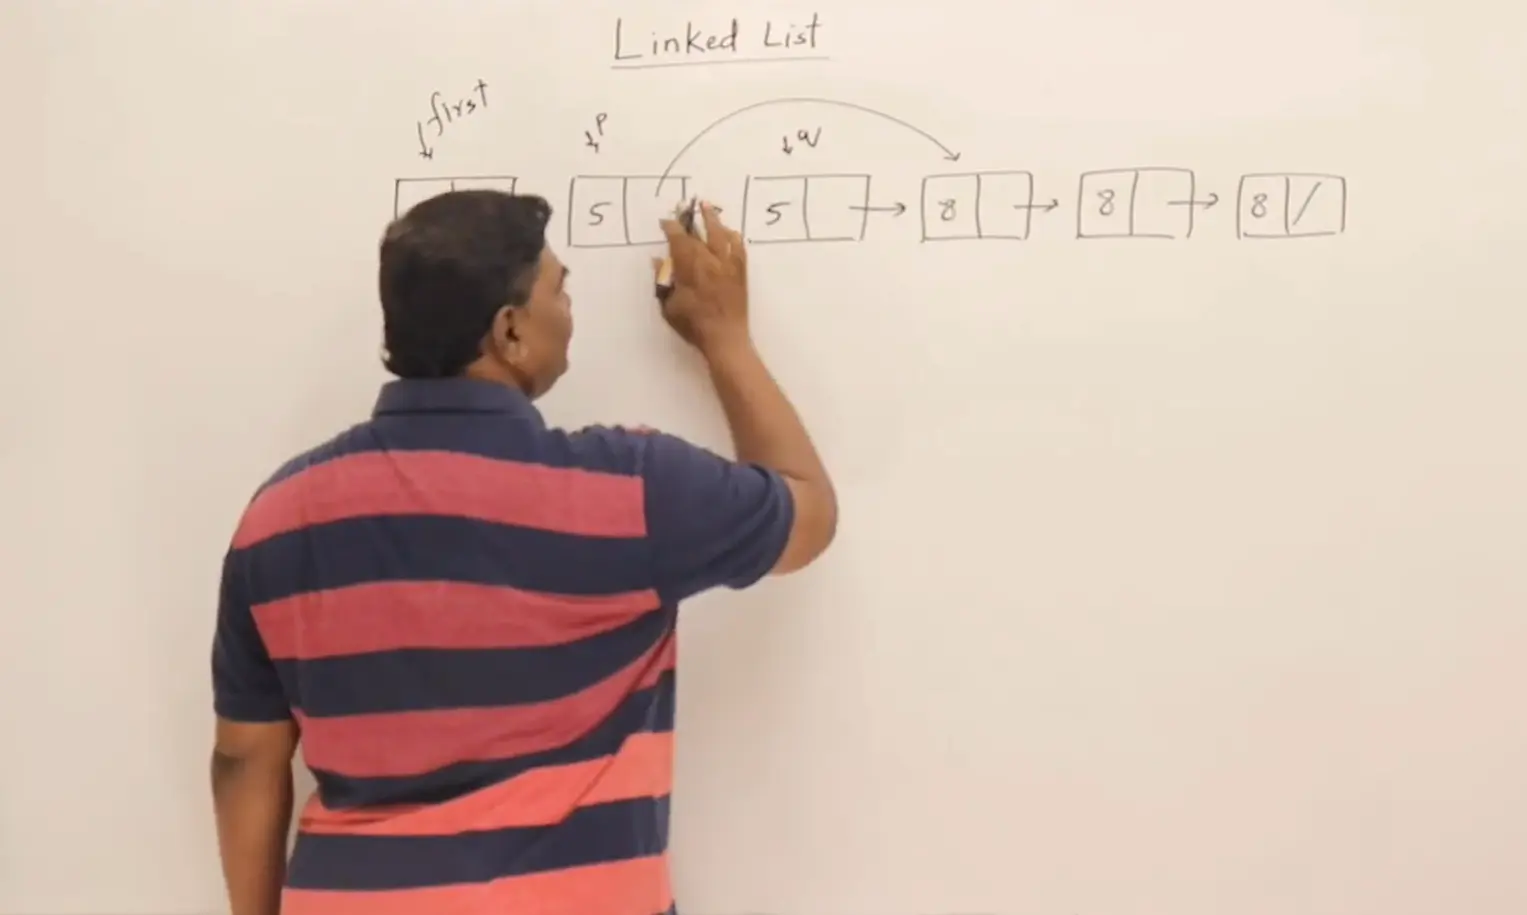 Linked List
first
p
q
5 5 8 8 8 /